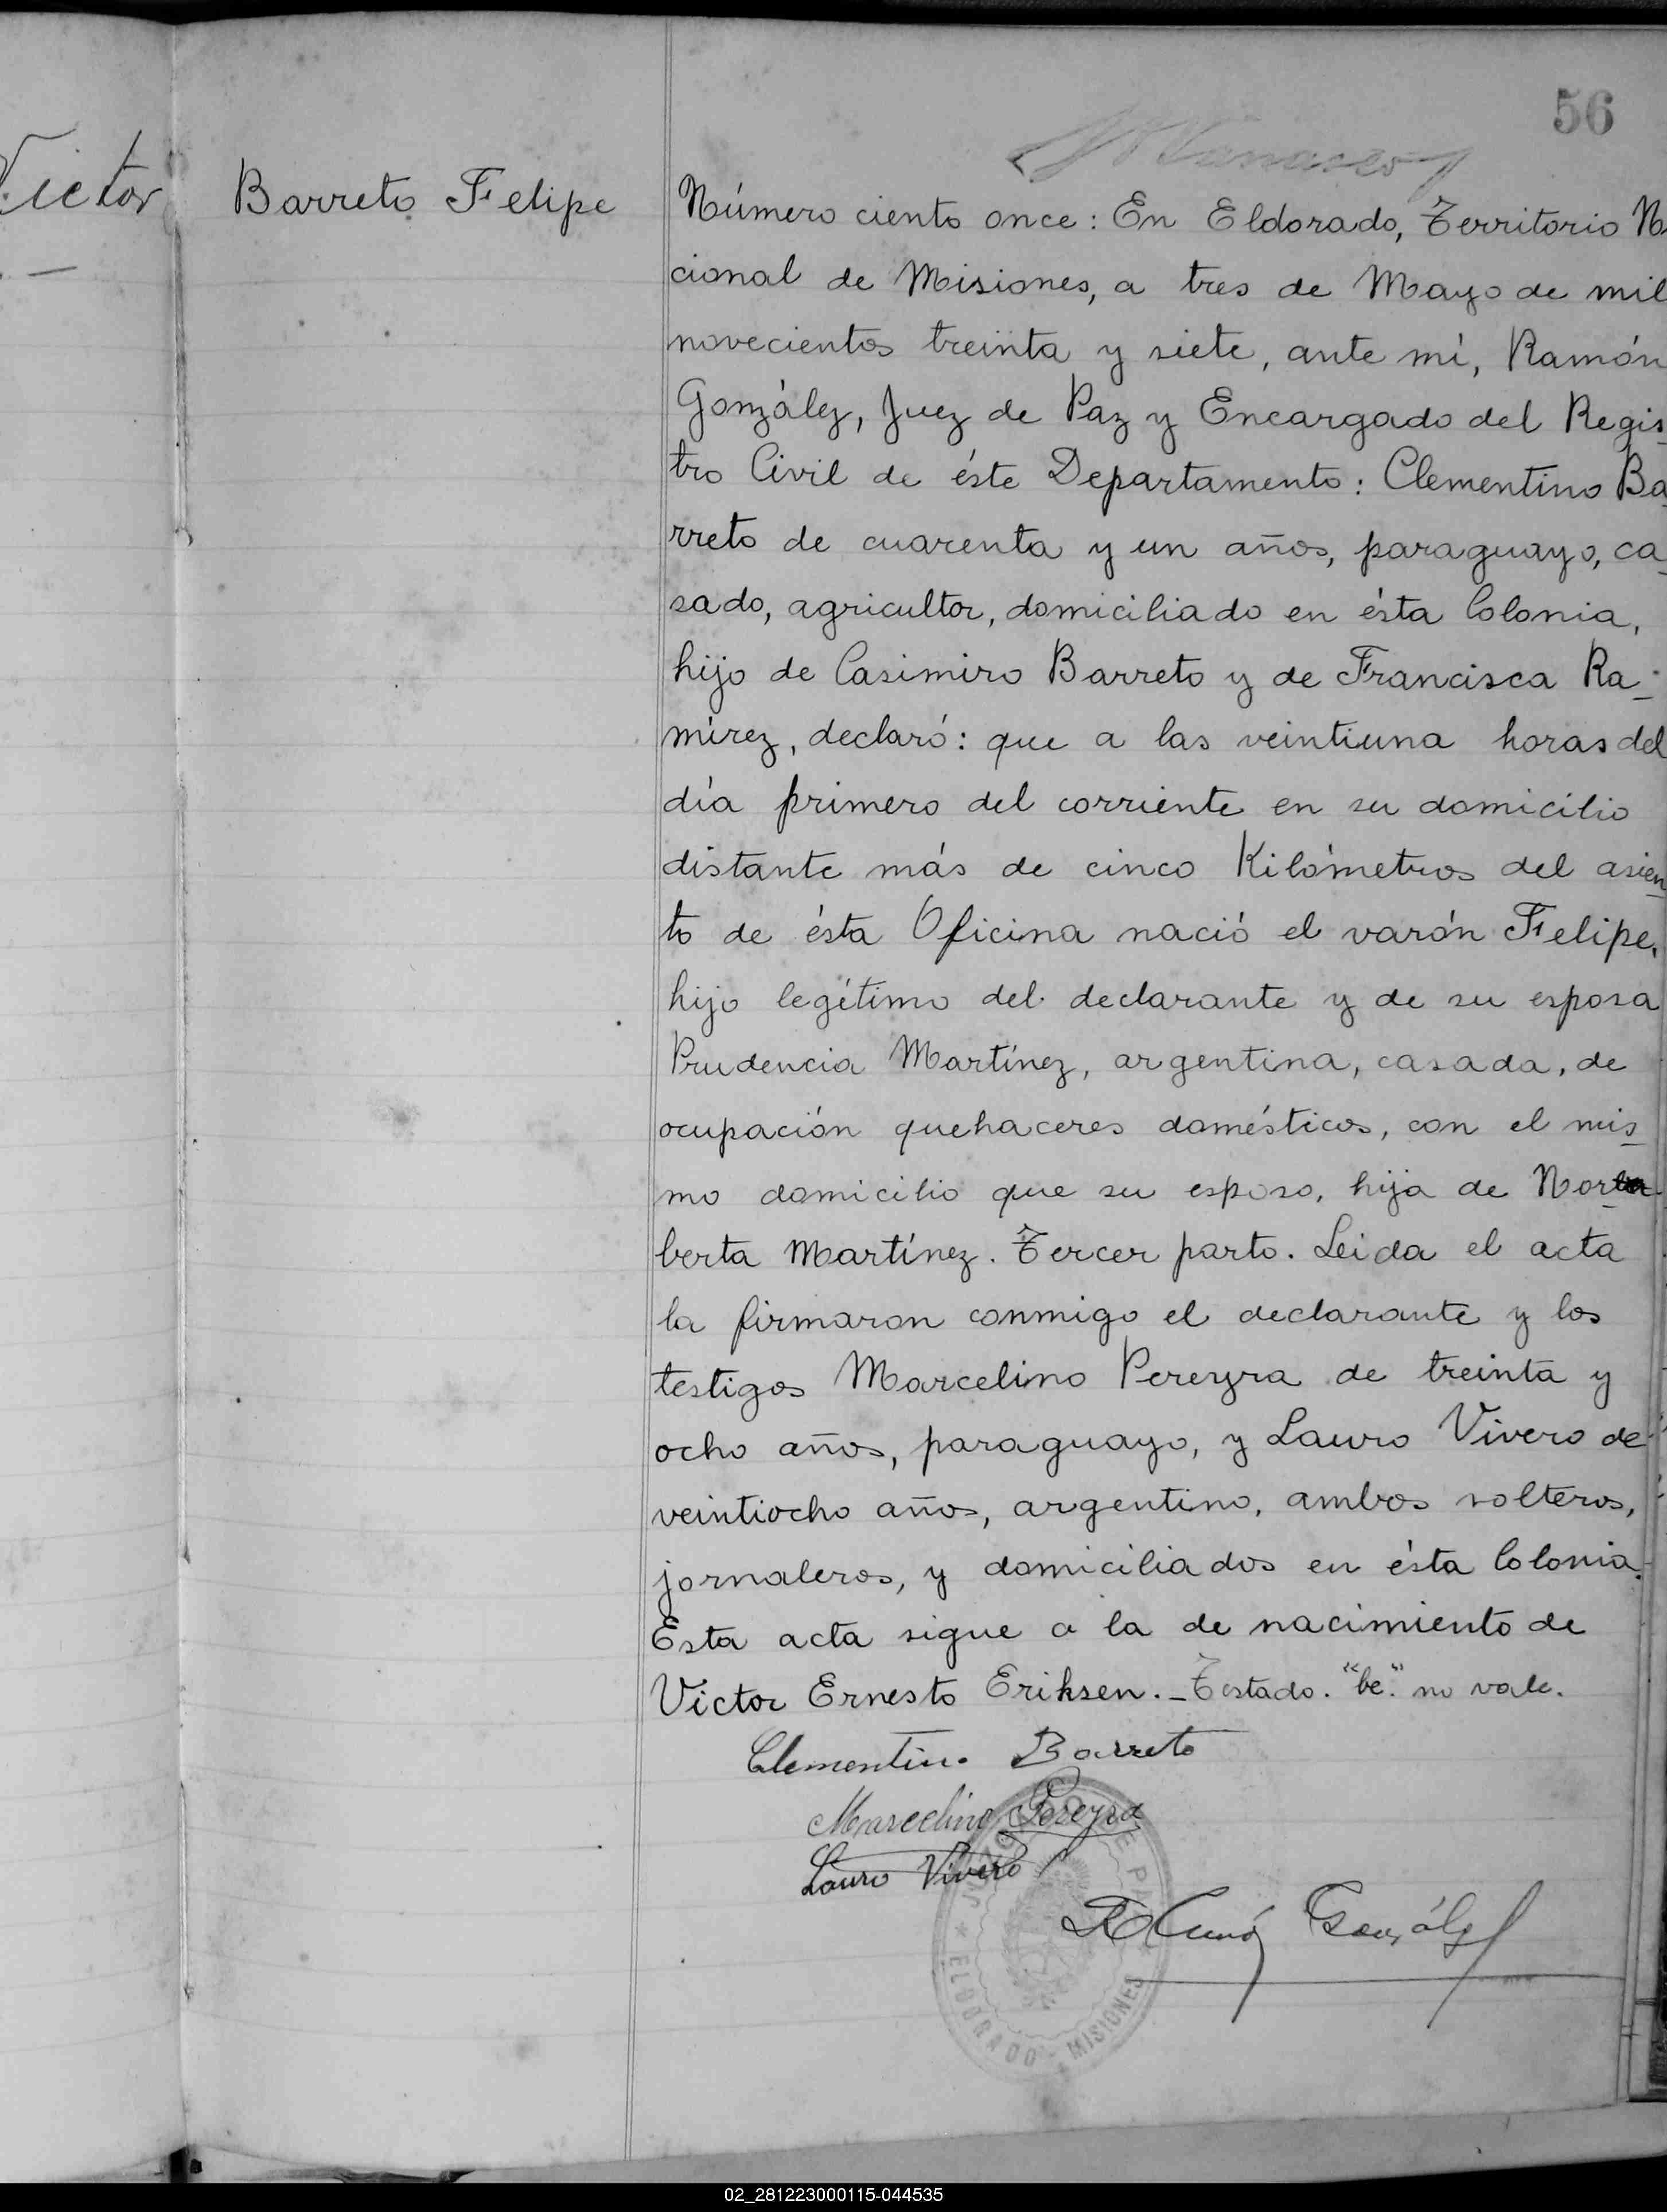 56
Victor
Barreto Felipe
Número ciento once: En Eldorado, Territorio Na
cional de Misiones, a tres de Mayo de mil
novecientos treinta y siete, ante mí, Ramón
González, Juez de Paz y Encargado del Regis
tro Civil de éste Departamento: Clementino Ba
rreto de cuarenta y un años, paraguayo, ca
sado, agricultor, domiciliado en ésta Colonia,
hijo de Casimiro Barreto y de Francisca Ra-
mírez, declaró: que a las veintiuna horas del
día primero del corriente en su domicilio
distante más de cinco Kilómetros del asien
to de ésta Oficina nació el varón Felipe,
hijo legítimo del declarante y de su esposa
Prudencia Martínez, argentina, casada, de
ocupación quehaceres domésticos, con el mis
mo domicilio que su esposo, hija de Nor
berta Martínez. Tercer parto. Leida el acta
la firmaron conmigo el declarante y los
testigos Marcelino Pereyra de treinta y
ocho años, paraguayo, y Lauro Vivero de
veintiocho años, argentino, ambos solteros,
jornaleros, y domiciliados en ésta Colonia.
Esta acta sigue a la de nacimiento de
Victor Ernesto Eriksen. - Testado. "be" no vale.
Clementino Barreto
Marcelino Pereyra
Lauro Vivero
Ramón González
ELDORADO - MISIONES
02_281223000115-044535